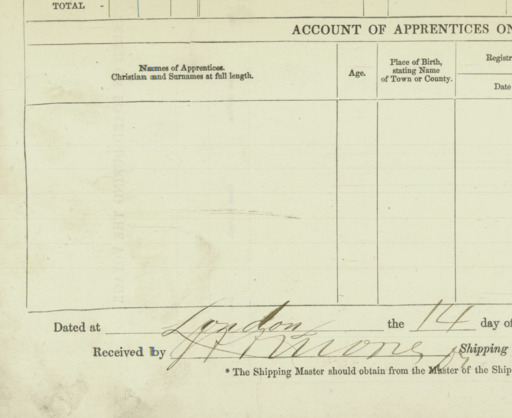 TOTAL -
ACCOUNT OF APPRENTICES ON
Names of Apprentices.
Christian and Surnames at full length.
Age.
Place of Birth,
stating Name
of Town or County.
Registr
Date
Dated at London the 14 day of
Received by Shipping
* The Shipping Master should obtain from the Master of the Ship